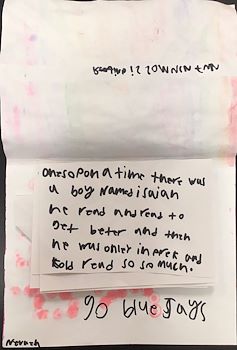 onesopon a time there was
a boy named isaiah
he read and read to
get beter and then
he was onley in prek and
Told read so so much.
go blue Jays